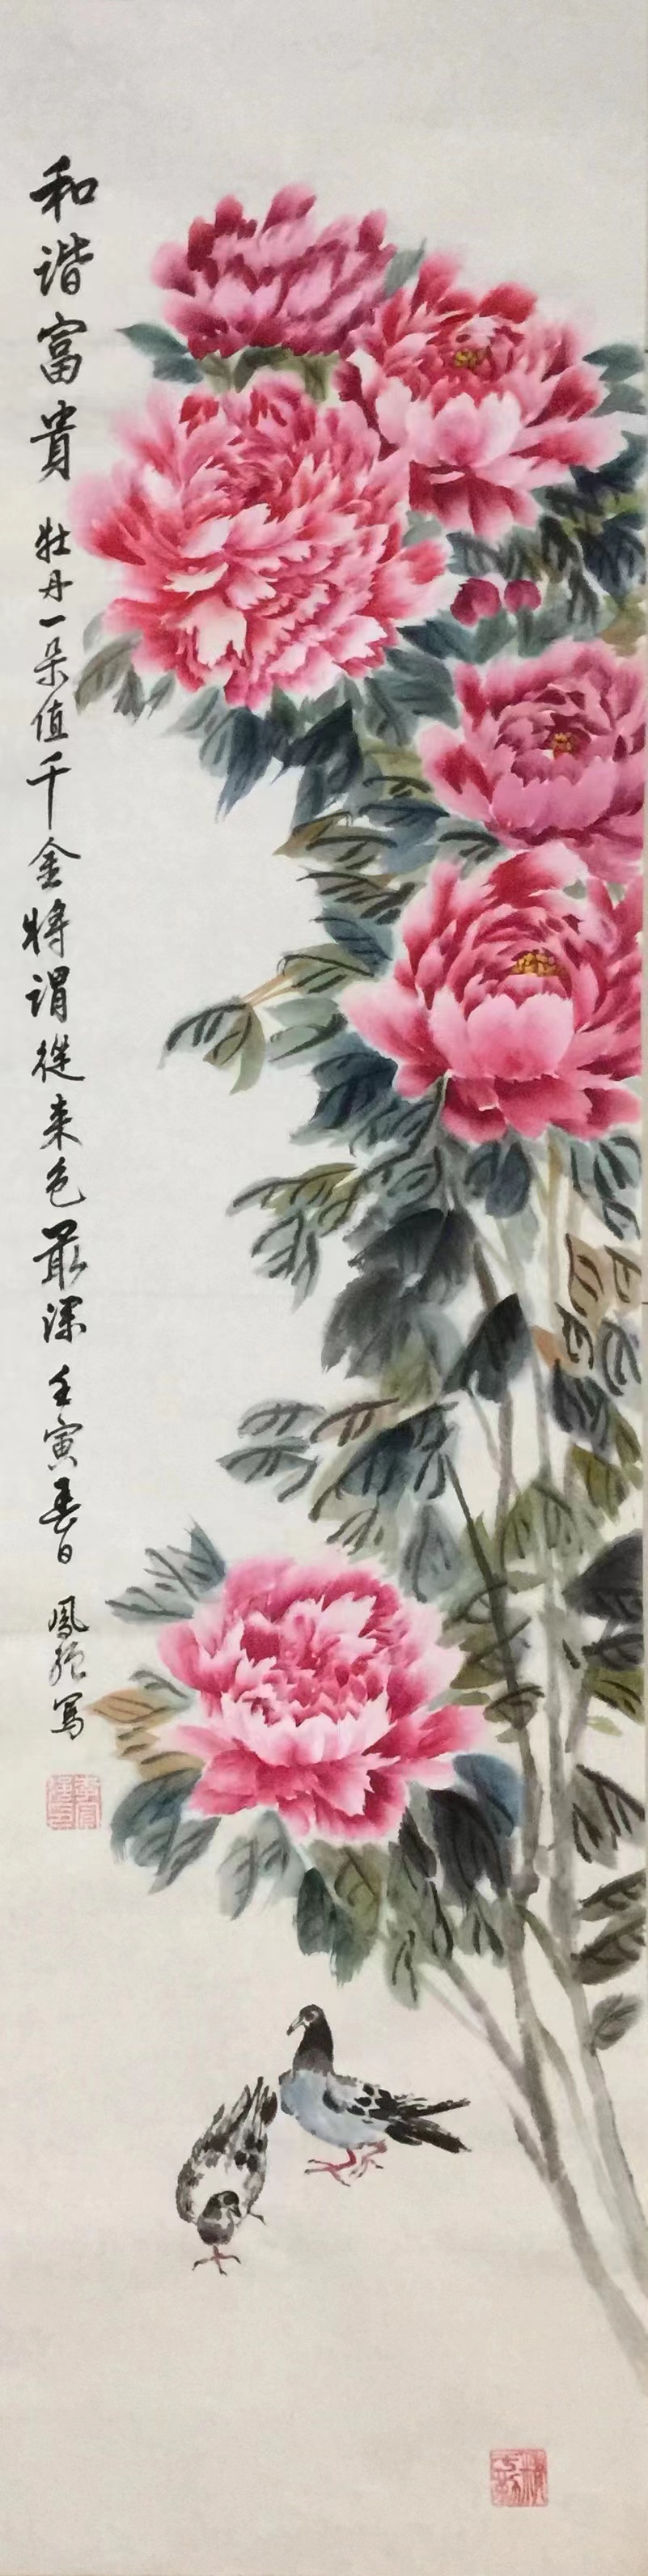 和谐富貴 牡丹一朵值千金將謂從来色最深 壬寅春日 鳳強写